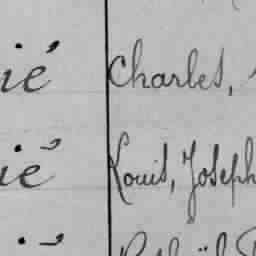 ié Charles,
ié Louis, Joseph